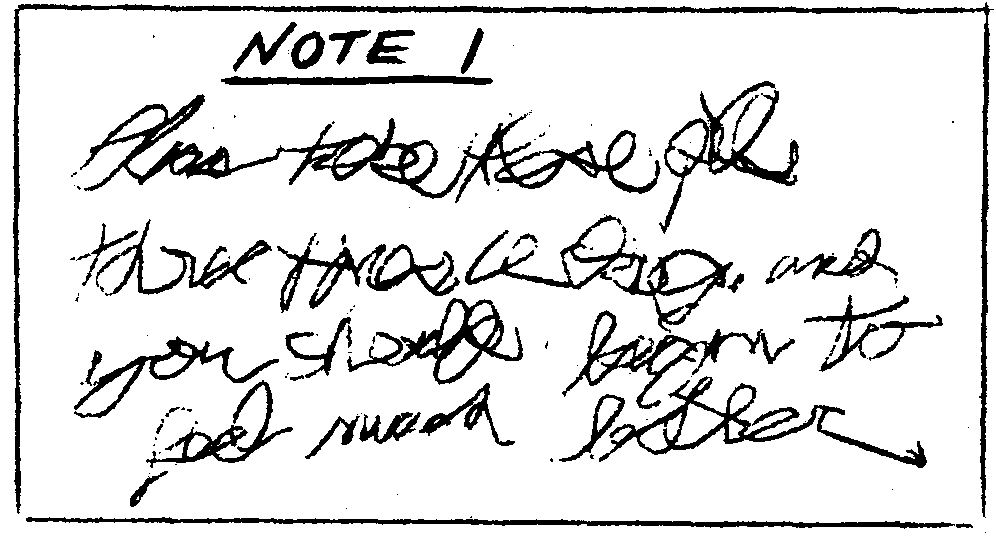 NOTE 1
Please take these pills
three times a day. and
you should begin to
feel much better